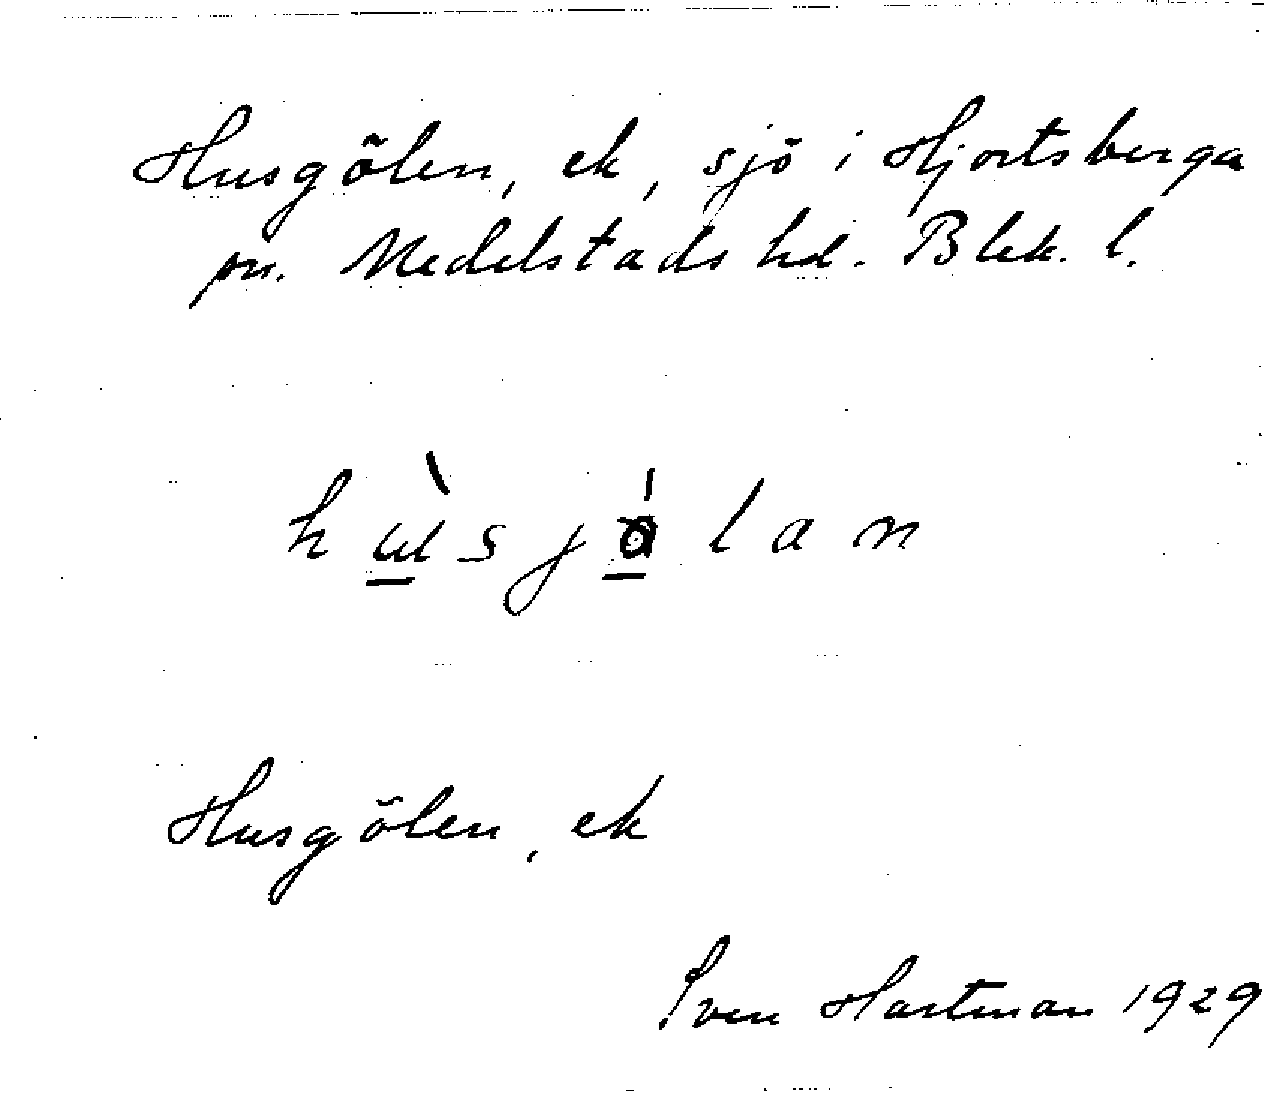 Husgölen, ek, sjö i Hjortsberga
sn. Medelstads hd. Blek. l.
hùsjölan
Husgölen, ek
Sven Hartman 1929